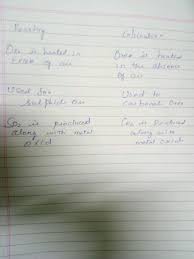 Roasting
Calcination
Ore is heated in
excess of air
Ore is heated
in the absence
of air
Used for
sulphide ore
Used to
carbonate ore
is produced
along with metal
oxid
CO2 is produced
along with
metal oxid